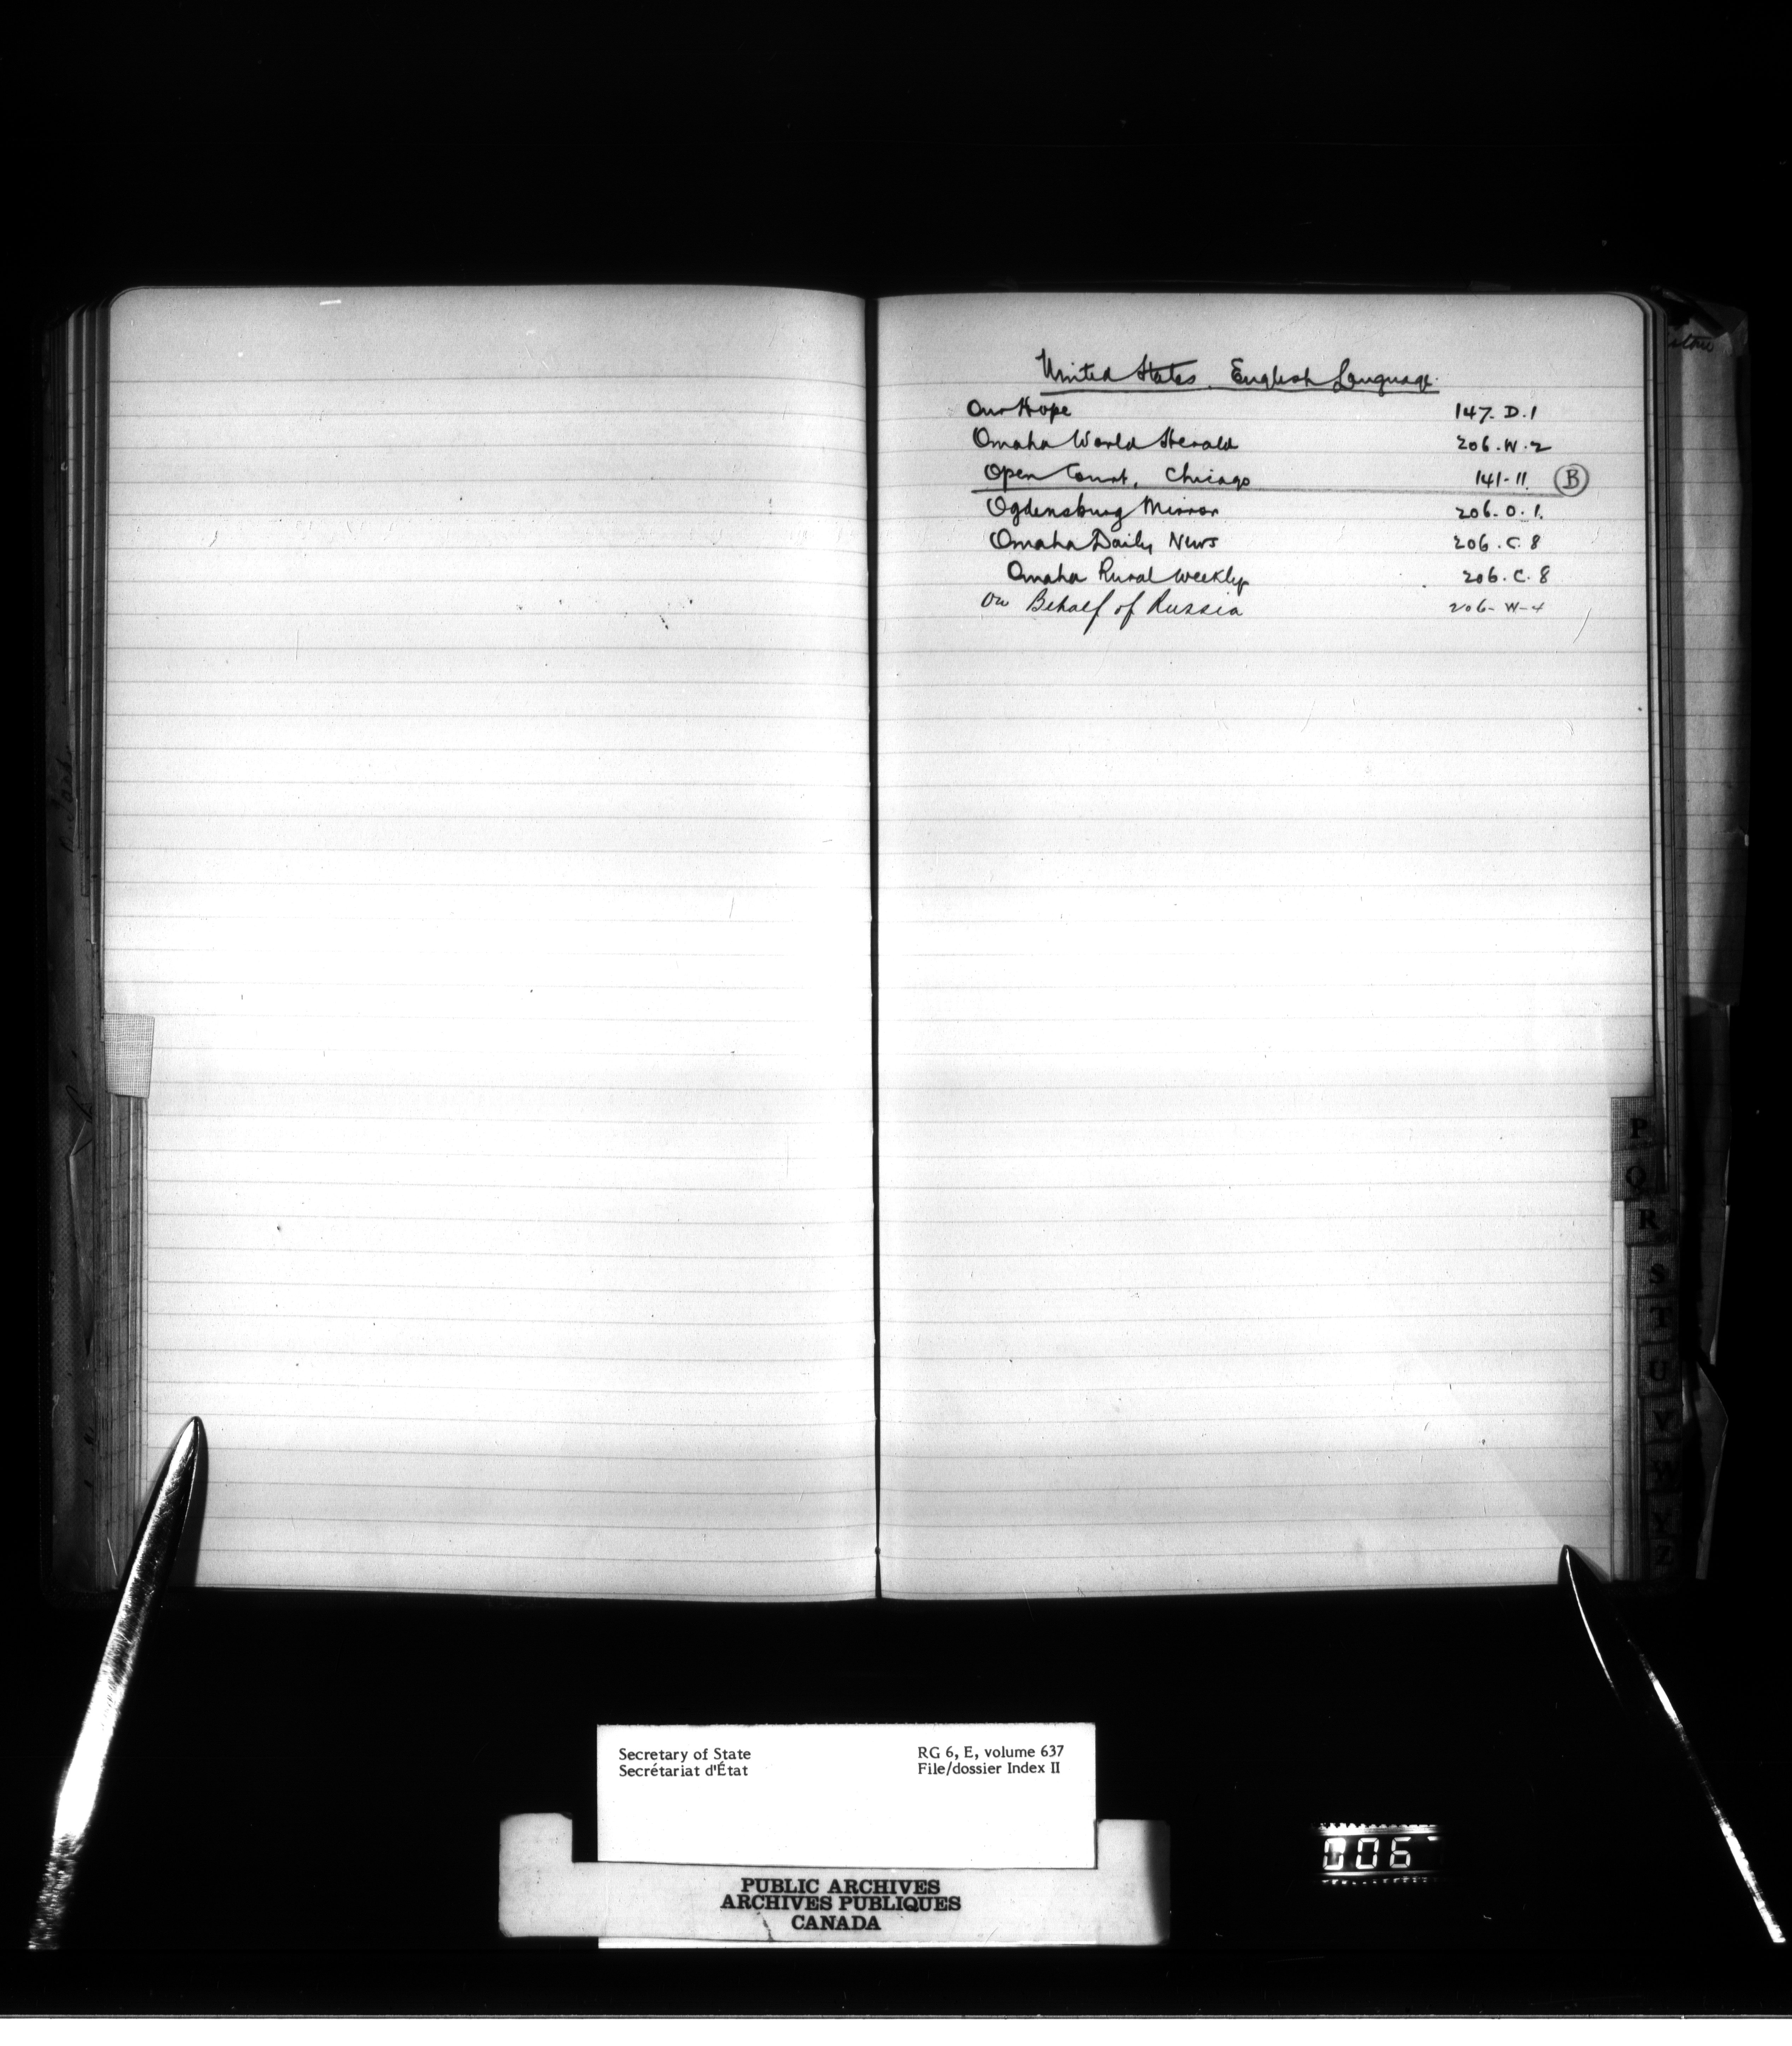 United States. English Language.
Our Hope 147. D. 1
Omaha World Herald 206. W. 2
Open Court, Chicago 141-11. B
Ogdensburg Mirror 206. O. 1.
Omaha Daily News 206. C. 8
Omaha Rural Weekly 206. C. 8
On Behalf of Russia 206- W-4
P
Q
R
S
T
U
V
W
Y
Z
Secretary of State
Secrétariat d'État
RG 6, E, volume 637
File/dossier Index II
PUBLIC ARCHIVES
ARCHIVES PUBLIQUES
CANADA
006